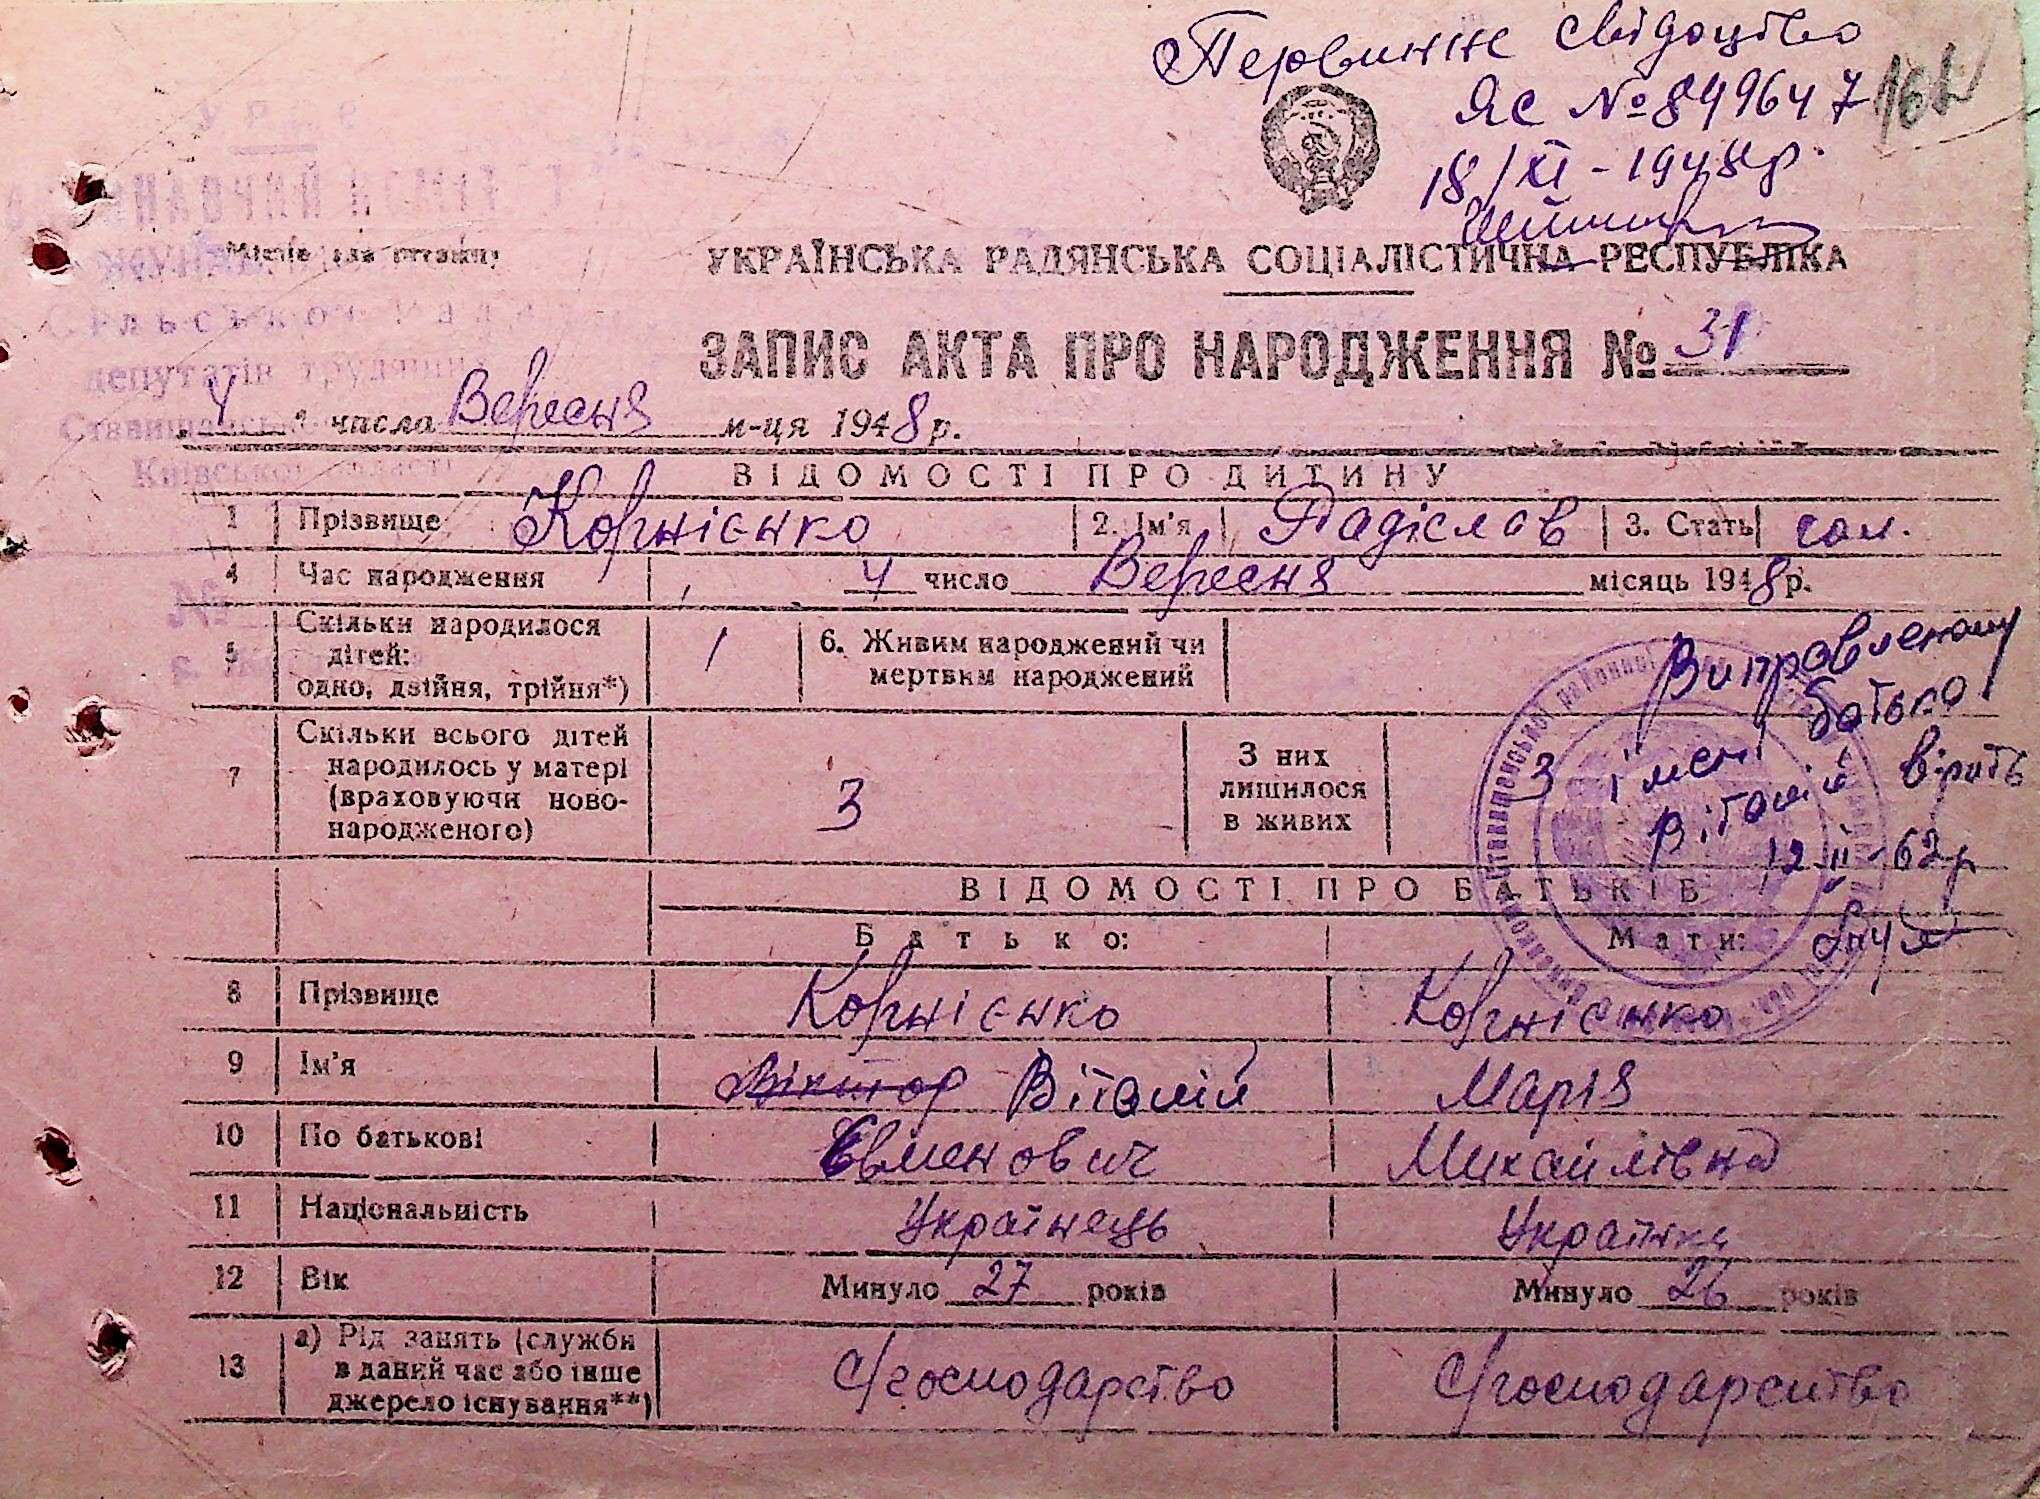 Первинне свідоцтво
ЯС №899647
162
18/XI-1948р.
УРСР
ВИКОНАВЧИЙ КОМІТЕТ
Місце для штампу
УКРАЇНСЬКА РАДЯНСЬКА СОЦІАЛІСТИЧНА РЕСПУБЛІКА
Сільської Ради
ЗАПИС АКТА ПРО НАРОДЖЕННЯ № 31
депутатів трудящих
„ 4 " числа Вересня м-ця 1948 р.
Київської області
ВІДОМОСТІ ПРО ДИТИНУ
1 Прізвище Корнієнко 2. Ім'я Радіслав 3. Стать чол.
4 Час народження 4 число Вересня місяць 1948 р.
№
5 Скільки народилося
дітей:
одно, двійня, трійня*) 1 6. Живим народжений чи
мертвим народжений
7 Скільки всього дітей
народилось у матері
(враховуючи ново-
народженого) 3 З них
лишилося
в живих 3
Виправленому
імені батька
Віталій вірить
12 II-62р
ВІДОМОСТІ ПРО БАТЬКІВ
Батько: Мати:
8 Прізвище Корнієнко Корнієнко
9 Ім'я Віктор Віталій Марія
10 По батькові Євменович Михайлівна
11 Національність Українець Українка
12 Вік Минуло 27 років Минуло 26 років
13 а) Рід занять (служби
в даний час або інше
джерело існування**) С/господарство С/господарство